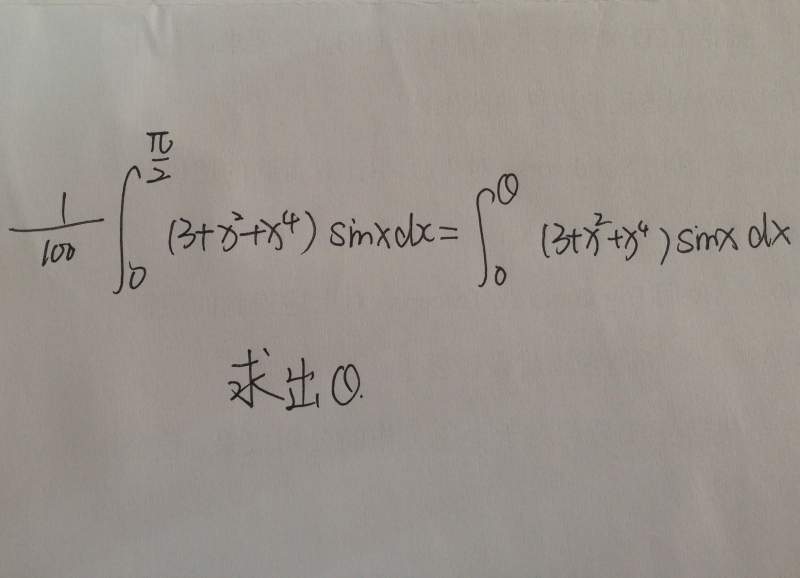 $\frac{1}{100} \int_{0}^{\frac{\pi}{2}} (3+x^2+x^4) \sin x dx = \int_{0}^{\theta} (3+x^2+x^4) \sin x dx$
求出θ.